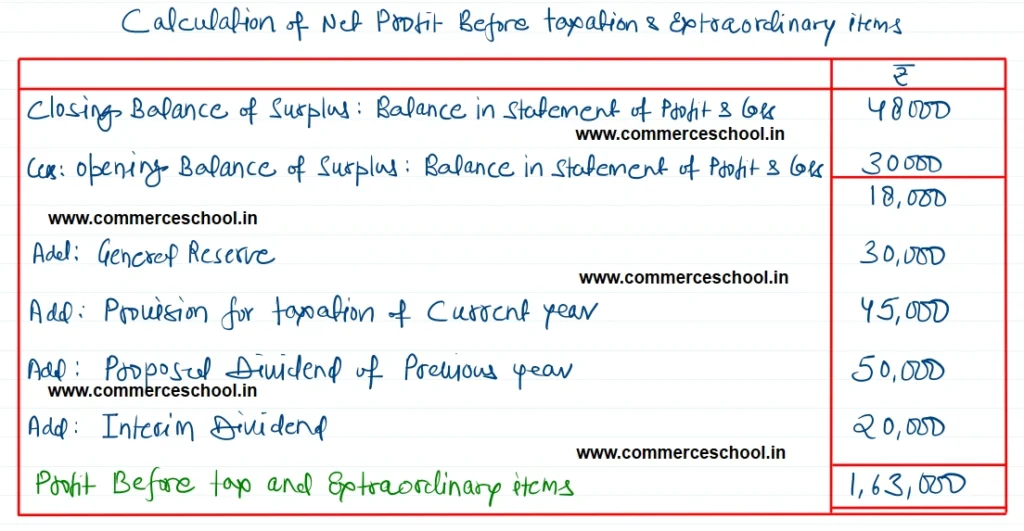 Calculation of Net Profit Before taxation & Extraordinary items
₹
Closing Balance of Surplus: Balance in Statement of Profit & Loss 48000
www.commerceschool.in
Less: Opening Balance of Surplus: Balance in Statement of Profit & Loss 30000
18,000
www.commerceschool.in
Add: General Reserve 30,000
www.commerceschool.in
Add: Provision for taxation of Current year 45,000
Add: Proposed Dividend of Previous year 50,000
www.commerceschool.in
Add: Interim Dividend 20,000
www.commerceschool.in
Profit Before tax and Extraordinary items 1,63,000